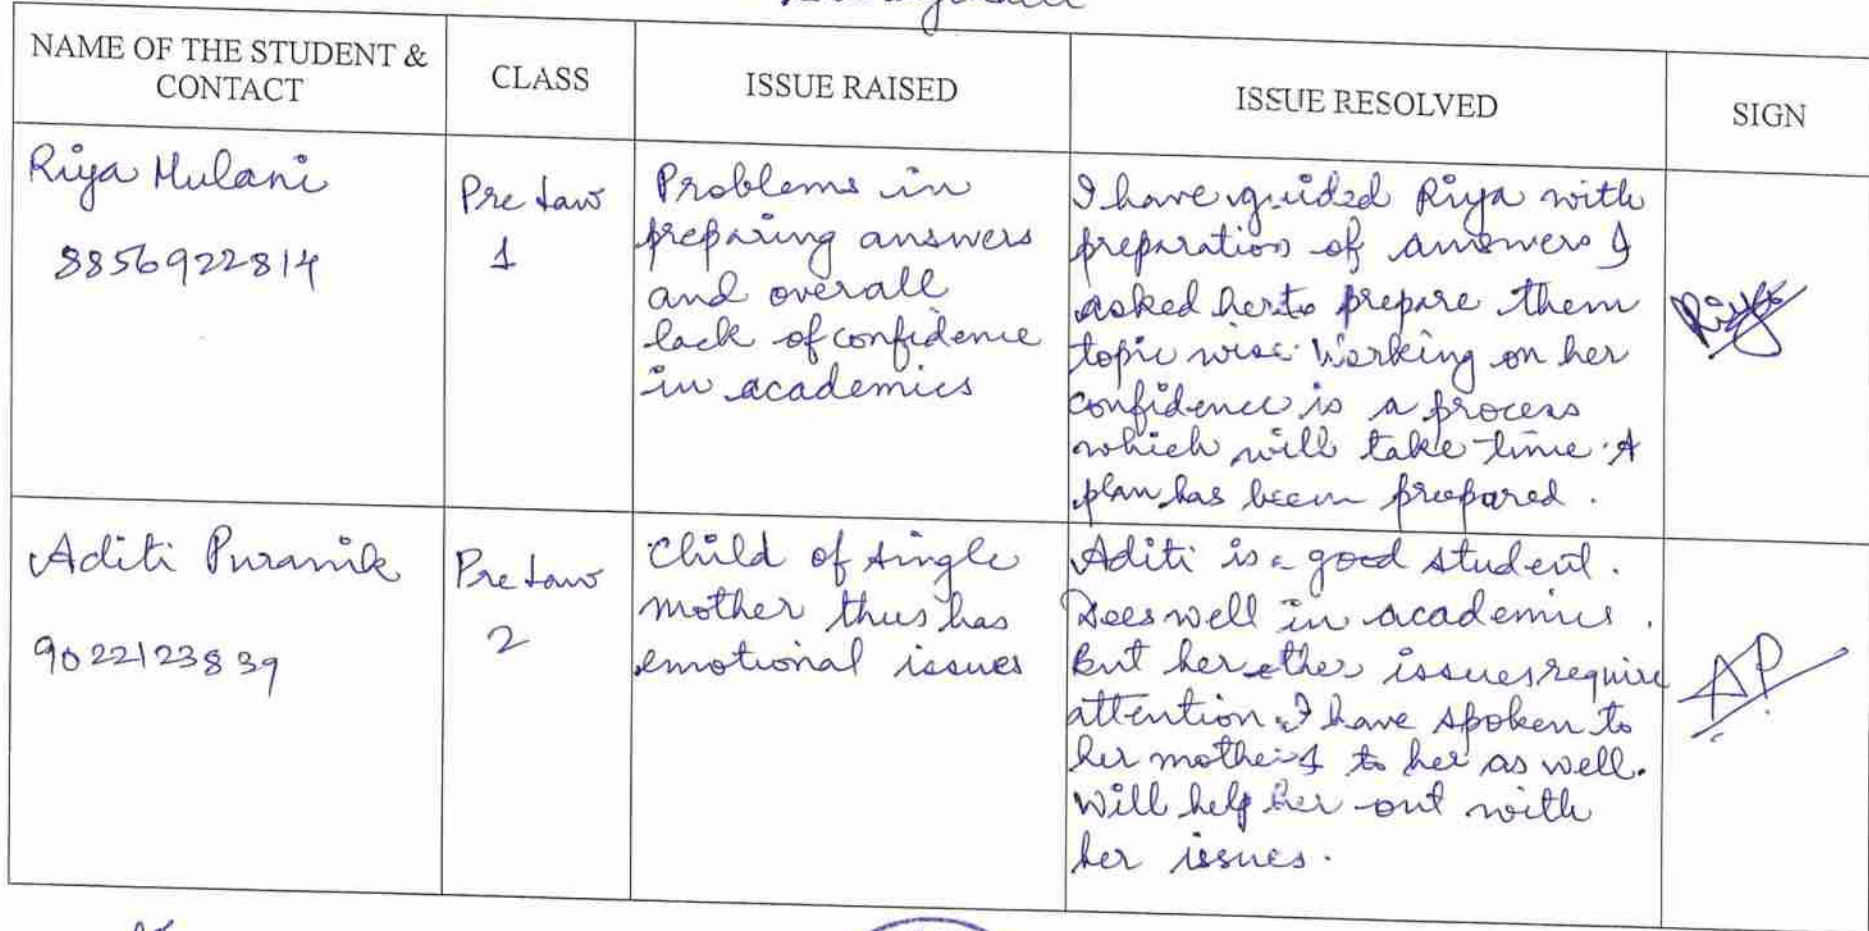 NAME OF THE STUDENT &
CONTACT
CLASS
ISSUE RAISED
ISSUE RESOLVED
SIGN
Riya Mulani
8856922814
Pre Law
1
Problems in
preparing answers
and overall
lack of confidence
in academics
I have guided Riya with
preparation of answers I
asked her to prepare them
topic wise. Working on her
confidence is a process
which will take time. A
plan has been prepared.
Riya
Aditi Puranik
9022123839
Pre Law
2
Child of single
mother thus has
emotional issues
Aditi is a good student.
Does well in academics.
But her other issues require
attention. I have spoken to
her mother & to her as well.
Will help her out with
her issues.
AP